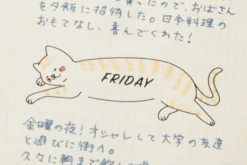 ったので、おばさん
を夕飯に招待した。日本料理の
おもてなし、喜んでくれた!
FRIDAY
金曜の夜! オシャレして大学の友達
と遊びに街へ。
久々に朝まで